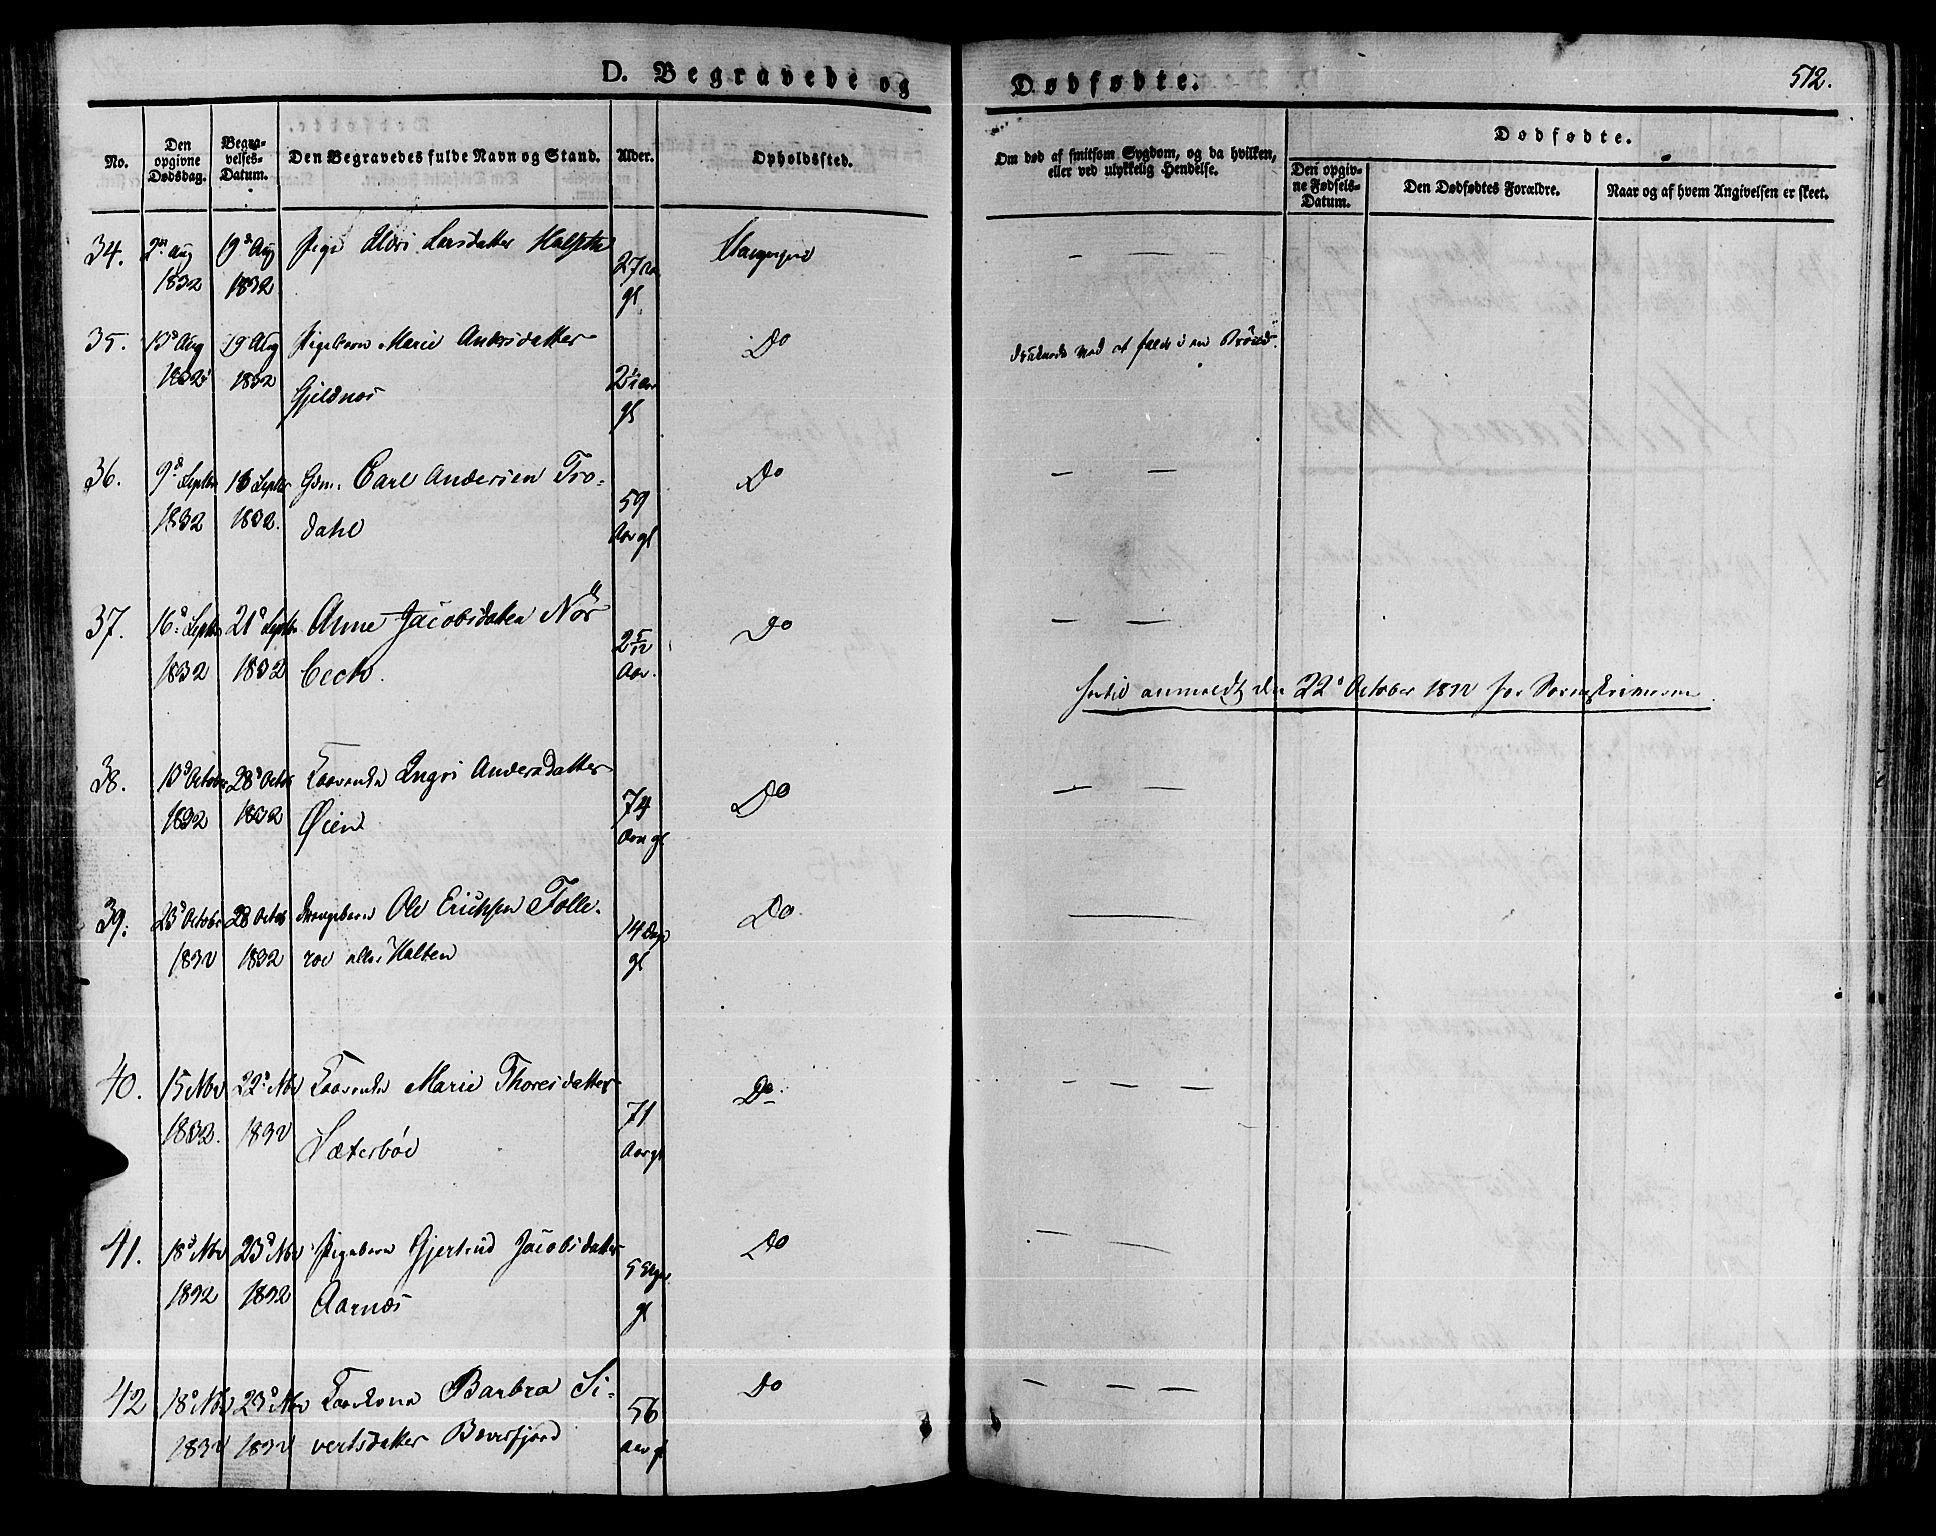 D. Begravede og Dødfødte.
512.
No.
Den opgivne Dødsdag.
Begravelses-Datum.
Den Begravedes fulde Navn og Stand.
Alder.
Opholdssted.
Om død af smitsom Sygdom, og da hvilken, eller ved ulykkelig Hendelse.
Dødfødte.
Den opgivne Fødsels-Datum.
Den Dødfødtes Forældre.
Naar og af hvem Angivelsen er skeet.
34. 2den Aug 19d Aug Pige Larsdatter 27 Aar
1832 1832 gl.
35. 13d Aug 19 Aug Pigebarn Marie Andersdatter Do druknede ved at falde i en Brönd.
1832 1832 Gjeldnæs 2½ Aar
gl
36. 9d Septbr 13 Septbr Gdm. Carl Andersen Tro- Do — —
1832 1832. dahl 59
Aar gl
37. 16d Septbr 21d Septbr Anne Jacobsdatter Nor Do — —
1832 1832 beck. 2 5/12
Aar.
hertil anmeldt den 22d October 1832 for Sorenskriveren
38. 13d October 28d Octor Ingri Andersdatter Do — —
1832 1832 Øien 74
Aar gl
39. 23d October 28 Octor Drengebarn Ole Erichsen Tolle- Do
1832 1832 roe eller Halten 14 Dage
gl
40. 15 Nov 22d Nov Marie Thoresdatter Do — — —
1832. 1832 Sæterböe 71
Aar gl
41. 18d Nov 23d Nov Pigebarn Gjertrud Jacobsdatter Do — —
1832 1832 Aarnæs 5 Uger
gl
42 18d Nov 23d Nov Barbra Si- Do — — —
1832 1832 vertsdatter Bævefjord 56
Aar gl